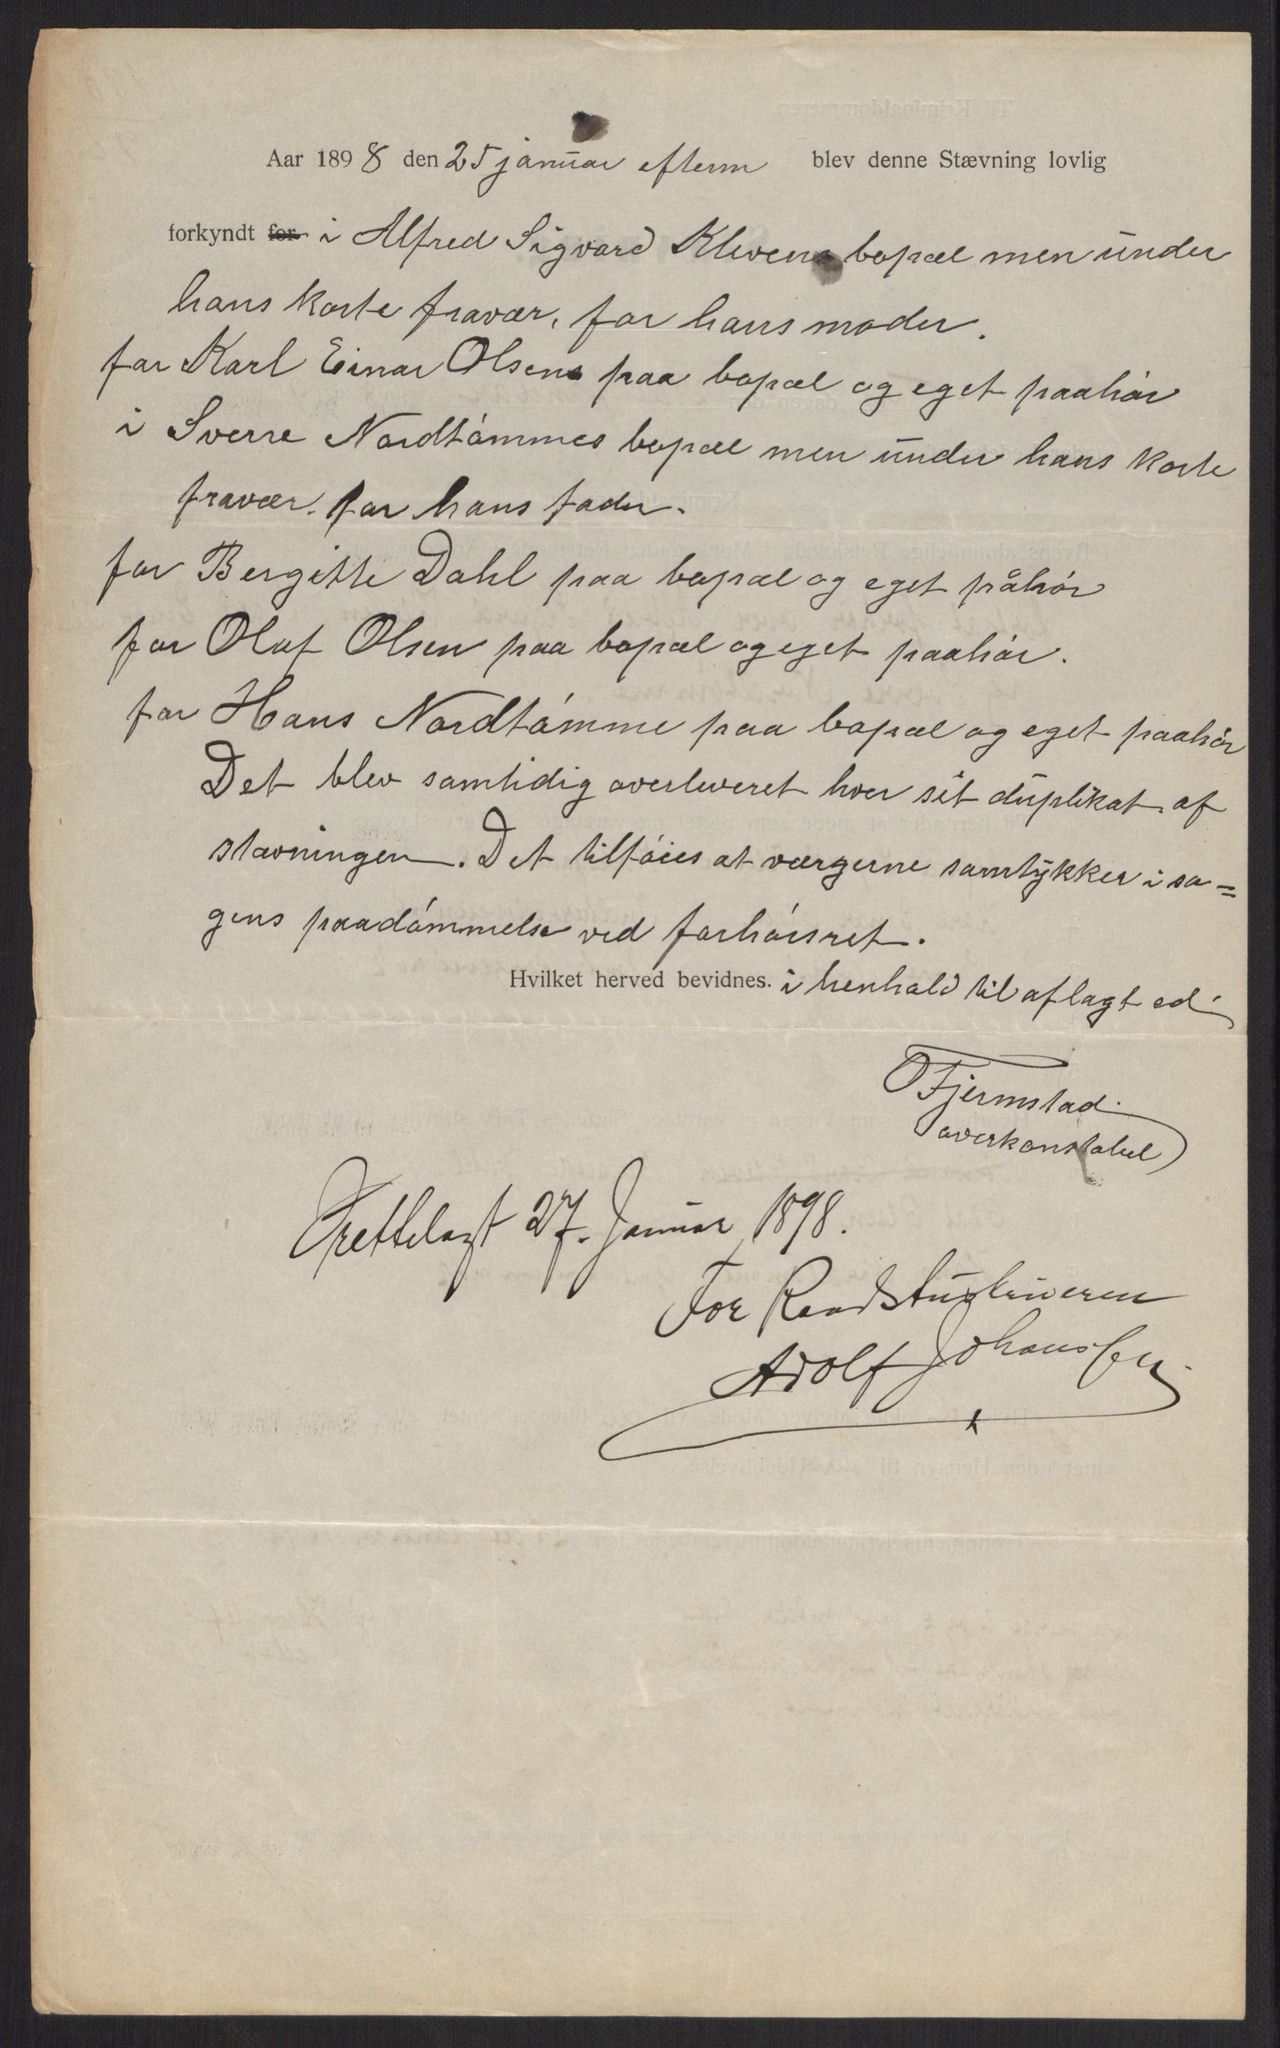 Aar 1898 den 25 januar efterm blev denne Stævning lovlig
forkyndt for i Alfred Sigvard Klevens bopæl men under
hans korte fravær, for hans moder.
for Karl Einar Olsens paa bopæl og eget paahør
i Sverre Nordtømmes bopæl men under hans korte
fravær. for hans fader.
for Bergitte Dahl paa bopæl og eget påhør
for Olaf Olsen paa bopæl og eget paahør.
for Hans Nordtømme paa bopæl og eget paahør
Det blev samtidig overleveret hver sit duplikat af
stævningen. Det tilføies at værgerne samtykker i sa=
gens paadømmelse ved forhørsret.
Hvilket herved bevidnes. i henhold til aflagt ed.
O Fjermstad
overkonstabel
Irettelagt 27. Januar 1898.
For Raadstuskriveren
Adolf Johansen